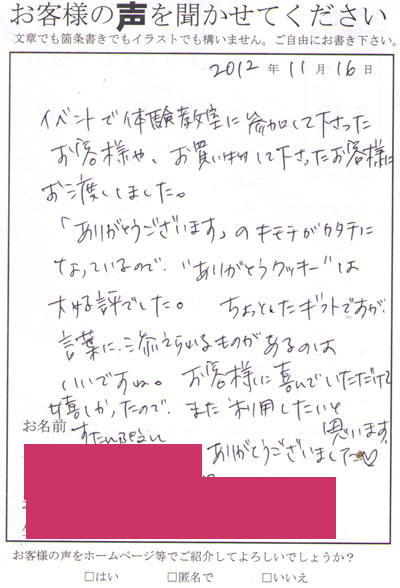 お客様の声を聞かせてください
文章でも箇条書きでもイラストでも構いません。ご自由にお書き下さい。
2012年11月16日
イベントで体験教室に参加して下さった
お客様や、お買い物して下さったお客様に
お渡ししました。
「ありがとうございます」のキモチがカタチに
なっているので、“ありがとうクッキー”は
大好評でした。 ちょっとしたギフトですが、
言葉に添えられるものがあるのは
いいですね。 お客様に喜んでいただけて
嬉しかったので、また利用したいと
思います。
お名前
ありがとうございました♡
お客様の声をホームページ等でご紹介してよろしいでしょうか？
□はい □匿名で □いいえ